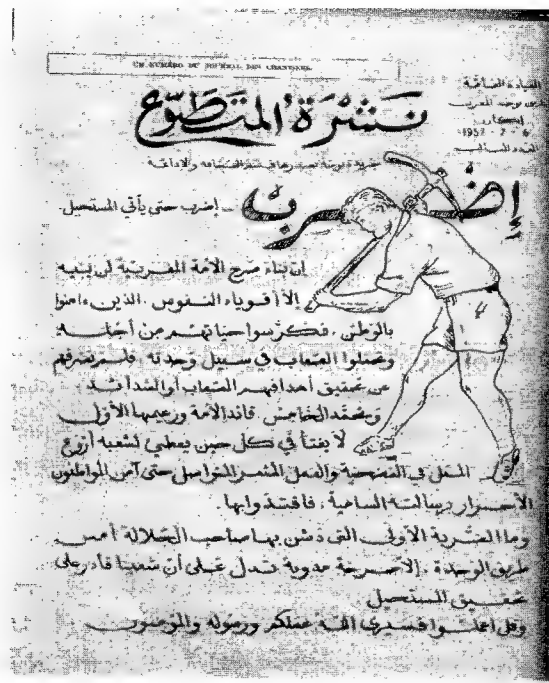 UN NUMERO DU JOURNAL DES CHANTIERS
القيادة العامة
طريق وحدة المغرب
إيكاون
6 - 7 - 1957
العدد
نشرة المتطوع
نشرة يومية يصدرها قسم الصحافة والإذاعة
إضرب
_ إضرب حتى يأتي المستحيل
إن بناء صرح الأمة المغربية لن يبنيه
إلا أقوياء النفوس، الذين آمنوا
بالوطن، فكرسوا حياتهم من أجله
وتحملوا الصعاب في سبيل وحدته، فلم تصرفهم
عن تحقيق أهدافهم الصعاب أو الشدائد
ومحمد الخامس، قائد الأمة وزعيمها الأول
لا يفتأ في كل حين يعطي لشعبه أروع
المثل في التضحية والعمل المثمر المتواصل حتى آمن المواطنون
الأحرار برسالته السامية، فاقتدوا بها.
وما الضربة الأولى التي دشن بها صاحب الجلالة أمس
طريق الوحدة، إلا صرخة مدوية تدل على أن شعبنا قادر على
تحقيق المستحيل
وقل اعملوا فسيرى الله عملكم ورسوله والمومنون